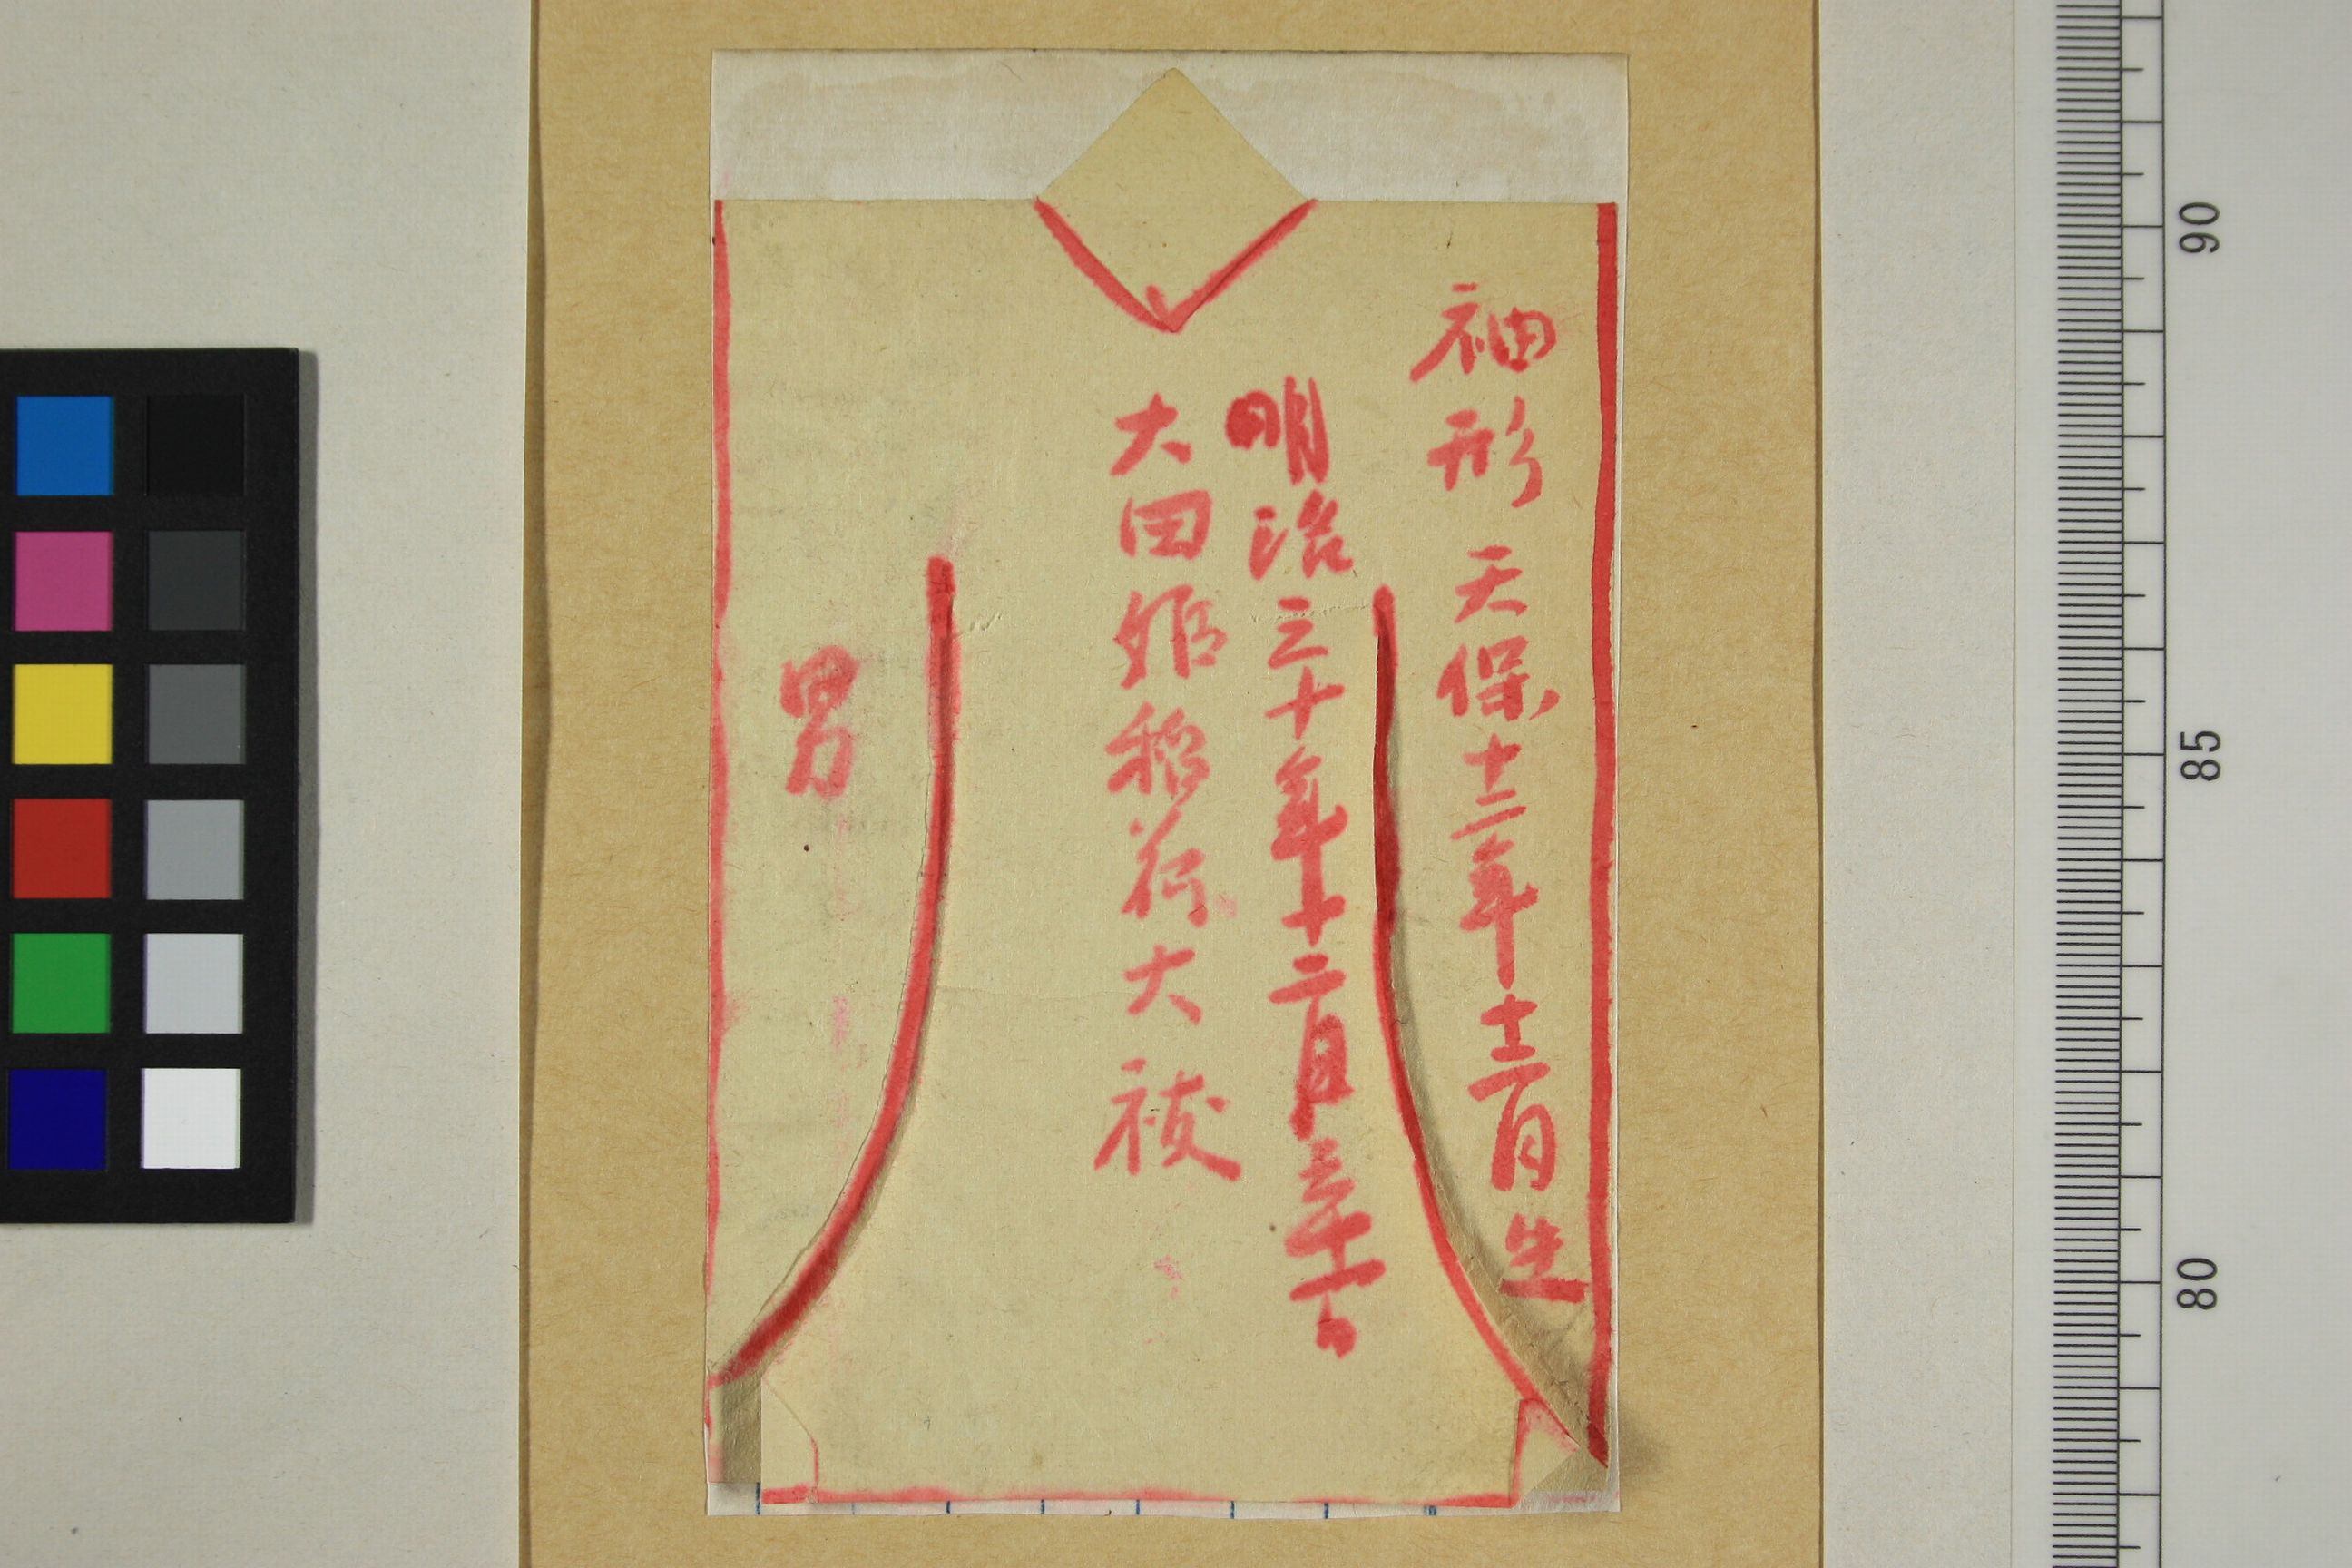 袖形 天保十二年十二月生
明治三十年十二月三十一日
大田姫稲荷大祓
男
90
85
80